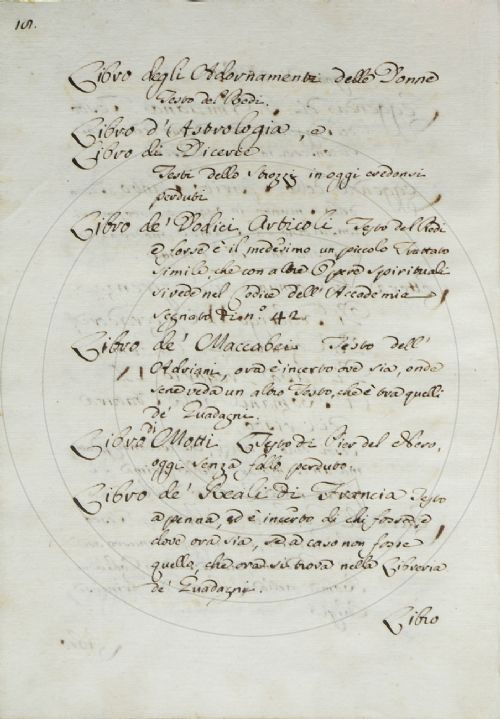 Libro degli Adornamenti delle Donne
Testo del Redi.
Libro d'Astrologia, e
Libro di Dicerie
Testi dello Strozzi in oggi credonsi
perduti
Libro de' Dodici Articoli Testo del Redi
e forse è il medesimo un piccolo Trattato
simile, che con altre Opere Spirituali
si vede nel Codice dell'Accademia
segnato con n.º 42.
Libro de' Maccabei Testo dell'
Adriani, ora è incerto ove sia, onde
se ne veda un altro Testo, che è tra quelli
de' Guadagni.
Libro di Motti Testo di Pier del Nero,
oggi senza fallo perduto.
Libro de' Reali di Francia Testo
a penna, ed è incerto di chi fosse, e
dove ora sia, se a caso non fosse
quello, che ora si trova nella Libreria
de' Guadagni.
Libro